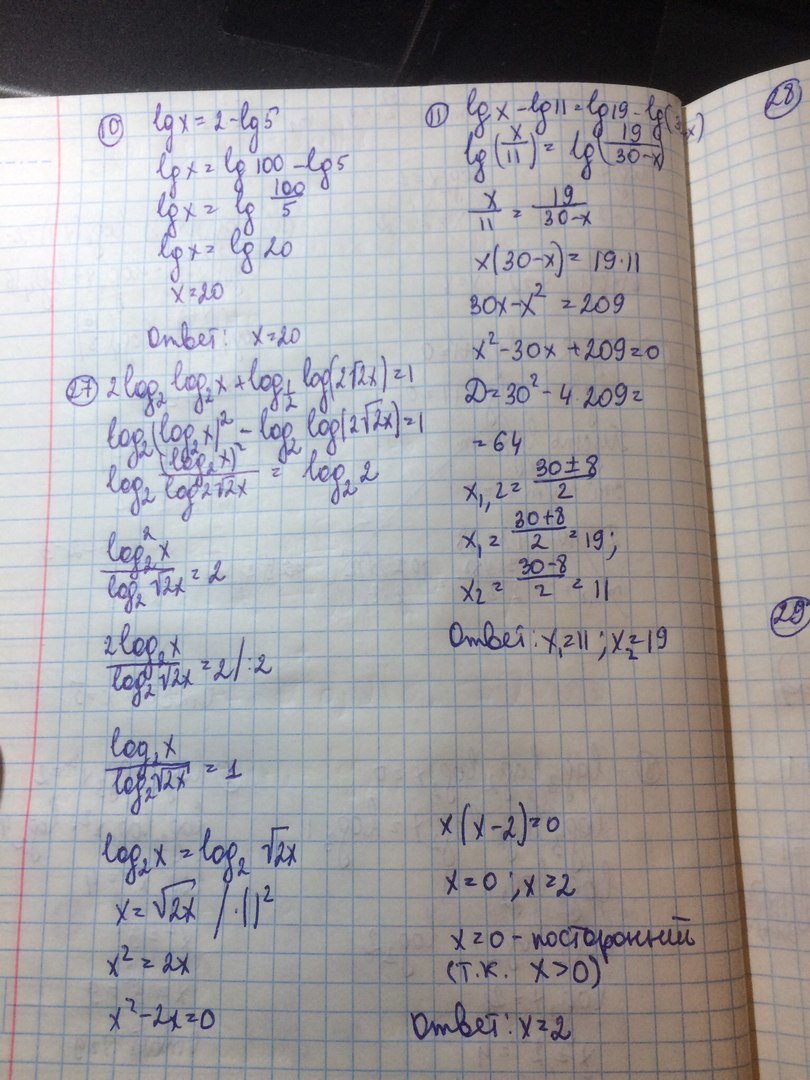 10 lg x = 2 - lg 5
lg x = lg 100 - lg 5
lg x = lg 100/5
lg x = lg 20
x = 20
Ответ: x = 20
27 2log₂ log₂x + log_{1/2} log(2√2x) = 1
log₂(log₂x)² - log₂ log(2√2x) = 1
log₂ (log₂x)²/log 2√2x = log₂ 2
log₂² x / log₂ √2x = 2
2log₂x / log₂ √2x = 2 | :2
log₂x / log₂ √2x = 1
log₂x = log₂ √2x
x = √2x / ·( )²
x² = 2x
x² - 2x = 0
11 lg x - lg 11 = lg 19 - lg(30-x)
lg(x/11) = lg(19/30-x)
x/11 = 19/30-x
x(30-x) = 19·11
30x - x² = 209
x² - 30x + 209 = 0
D = 30² - 4·209 =
= 64
x₁,₂ = 30±8/2
x₁ = 30+8/2 = 19;
x₂ = 30-8/2 = 11
Ответ: x₁ = 11; x₂ = 19
x(x-2) = 0
x = 0; x = 2
x = 0 - посторонний
(т.к. x > 0)
Ответ: x = 2
28
29